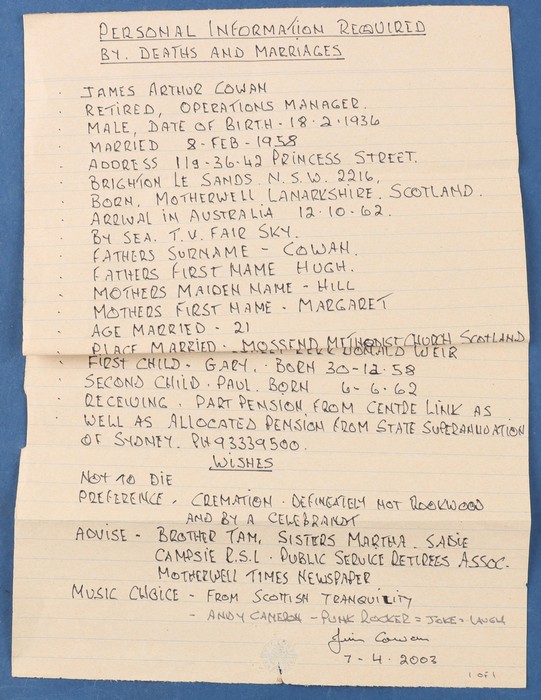 PERSONAL INFORMATION REQUIRED
BY. DEATHS AND MARRIAGES
JAMES ARTHUR COWAN
RETIRED, OPERATIONS MANAGER.
MALE, DATE OF BIRTH - 18.2.1936
MARRIED 8-FEB-1958
ADDRESS 119-36-42 PRINCESS STREET.
BRIGHTON LE SANDS N.S.W. 2216.
BORN, MOTHERWELL LANARKSHIRE, SCOTLAND.
ARRIVAL IN AUSTRALIA 12.10.62.
BY SEA. T.V. FAIR SKY.
FATHERS SURNAME - COWAN.
FATHERS FIRST NAME HUGH.
MOTHERS MAIDEN NAME - HILL
MOTHERS FIRST NAME - MARGARET
AGE MARRIED - 21
PLACE MARRIED - MOSSEND METHODIST CHURCH SCOTLAND
DONALD WEIR
FIRST CHILD - GARY. BORN 30-12.58
SECOND CHILD. PAUL. BORN 6-6-62
RECEIVING. PART PENSION FROM CENTRE LINK AS
WELL AS ALLOCATED PENSION FROM STATE SUPERANNUATION
OF SYDNEY. PH 93339500.
WISHES
NOT TO DIE
PREFERENCE. CREMATION. DEFINEATELY NOT ROOKWOOD
AND BY A CELEBRANDT
ADVISE - BROTHER TAM, SISTERS MARTHA SADIE
CAMPSIE R.S.L. PUBLIC SERVICE RETIREES ASSOC.
MOTHERWELL TIMES NEWSPAPER
MUSIC CHOICE - FROM SCOTTISH TRANQUILITY
- ANDY CAMERON - PUNK ROCKER = JOKE = LAUGH
Jim Cowan
7-4-2003
1 of 1